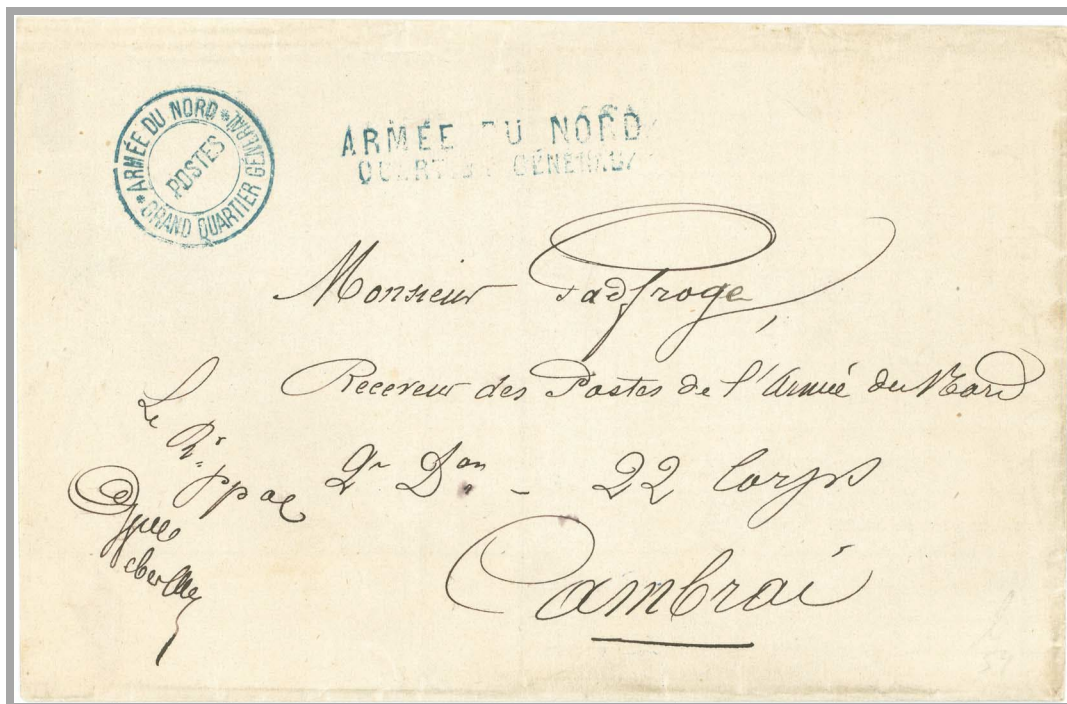 *ARMÉE DU NORD*
GRAND QUARTIER GENERAL
POSTES
ARMÉE DU NORD
QUARTIER GÉNÉRAL
Monsieur
Receveur des Postes de l'Armée du Nord
2e Don - 22 Corps
Cambrai
Le Rr
ppal